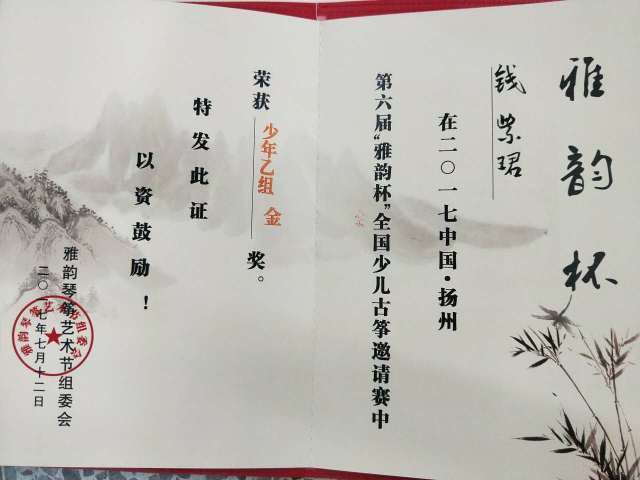 雅韵杯
钱紫珺
在二〇一七中国·扬州
第六届“雅韵杯”全国少儿古筝邀请赛中
荣获 少年乙组 金 奖。
特发此证
以资鼓励！
雅韵琴筝艺术节组委会
二〇一七年七月十二日